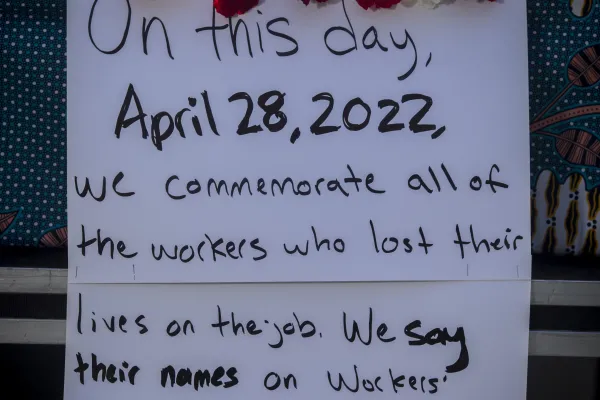 On this day,
April 28, 2022,
we commemorate all of
the workers who lost their
lives on the job. We say
their names on Workers'